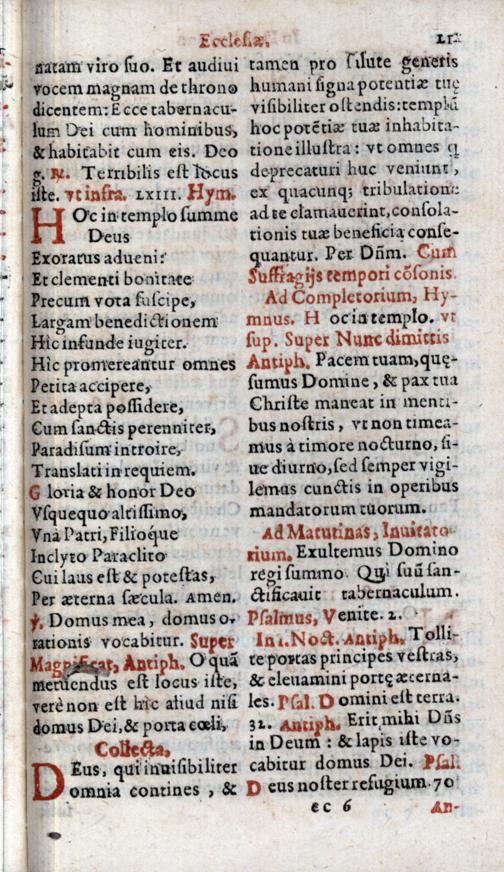 Ecclesiæ.
natam viro ſuo. Et audiui
vocem magnam de throno
dicentem: Ecce tabernacu-
lum Dei cum hominibus,
& habitabit cum eis. Deo
g. ℞. Terribilis eſt locus
iſte. vt infra. LXIII. Hym.
HOc in templo ſumme
Deus
Exoratus adueni:
Et clementi bonitate
Precum vota ſuſcipe,
Largam benedictionem
Hic infunde iugiter.
Hic promereantur omnes
Petita accipere,
Et adepta poſſidere,
Cum ſanctis perenniter,
Paradiſum introire,
Translati in requiem.
Gloria & honor Deo
Vſquequo altiſſimo,
Vna Patri, Filioque
Inclyto Paraclito
Cui laus eſt & poteſtas,
Per æterna ſæcula. Amen.
℣. Domus mea, domus o-
rationis vocabitur. Super
Magnificat, Antiph. O quã
metuendus eſt locus iſte,
verè non eſt hîc aliud niſi
domus Dei, & porta cœli,
Collecta,
DEus, qui inuiſibiliter
omnia contines, &
tamen pro ſalute generis
humani ſigna potentiæ tuę
viſibiliter oſtendis: templũ
hoc potẽtiæ tuæ inhabita-
tione illuſtra: vt omnes q
deprecaturi huc veniunt,
ex quacunq; tribulatione
ad te clamauerint, conſola-
tionis tuæ beneficia conſe-
quantur. Per Dñm. Cum
Suffragijs tempori cõſonis.
Ad Completorium, Hy-
mnus. Hoc in templo. vt
ſup. Super Nunc dimittis
Antiph. Pacem tuam, quę-
ſumus Domine, & pax tua
Chriſte maneat in menti-
bus noſtris, vt non timea-
mus à timore nocturno, ſi-
ue diurno, ſed ſemper vigi-
lemus cunctis in operibus
mandatorum tuorum.
Ad Matutinas, Inuitato
rium. Exultemus Domino
regi ſummo. Qui ſuũ ſan-
ctificauit tabernaculum.
Pſalmus, Venite. 2.
In 1. Noct. Antiph. Tolli-
te portas principes veſtras,
& eleuamini portę æterna-
les. Pſal. Domini eſt terra.
32. Antiph. Erit mihi Dñs
in Deum: & lapis iſte vo-
cabitur domus Dei. Pſal.
Deus noſter refugium. 70
cc 6 An-